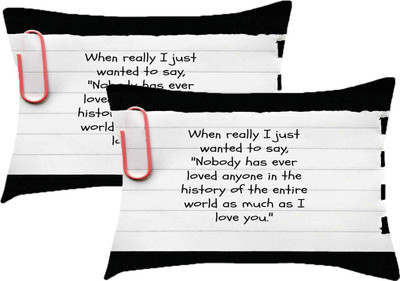 When really I just
wanted to say,
"Nobody has ever
loved
world
When really I just
wanted to say,
"Nobody has ever
loved anyone in the
history of the entire
world as much as I
love you."